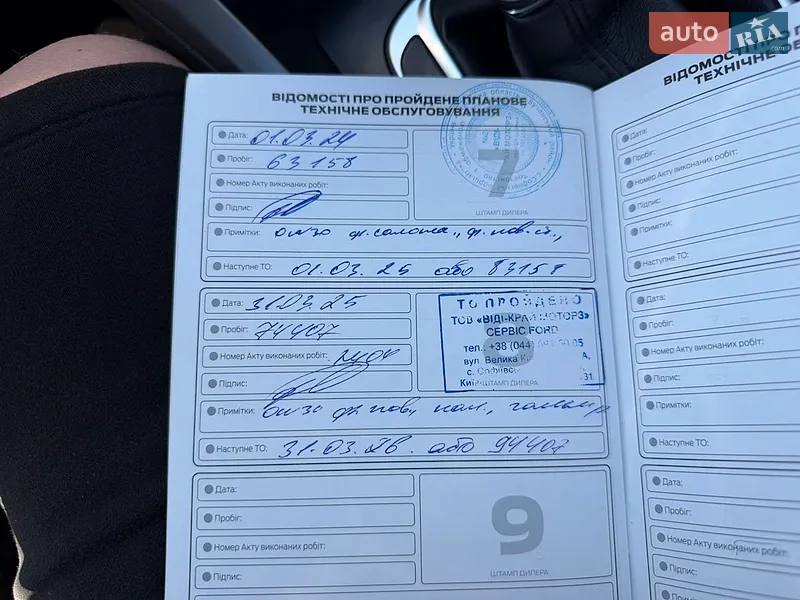 auto RIA
.com
ВІДОМОСТІ ПРО ПРОЙДЕНЕ ПЛАНОВЕ
ТЕХНІЧНЕ ОБСЛУГОВУВАННЯ
Дата: 01.03.24
Пробіг: 63158
Номер Акту виконаних робіт:
Підпис:
7
ШТАМП ДИЛЕРА
Примітки: ф.салона,
Наступне ТО: 01.03.25 або 83158
Дата: 31.03.25
Пробіг: 74407
Номер Акту виконаних робіт:
Підпис:
ТО ПРОЙДЕНО
ТОВ «ВІДІ-КРАЙ МОТОРЗ»
СЕРВІС FORD
тел.: +38 (044)
вул. Велика
с. Софіївсь
ШТАМП ДИЛЕРА
Примітки:
Наступне ТО: 31.03.26. або 94407
Дата:
Пробіг:
Номер Акту виконаних робіт:
Підпис:
9
ШТАМП ДИЛЕРА
ВІДОМОСТІ ПРО П
ТЕХНІЧНЕ
Дата:
Пробіг:
Номер Акту виконаних робіт:
Підпис:
Примітки:
Наступне ТО:
Дата:
Пробіг:
Номер Акту виконаних робіт:
Підпис:
Примітки:
Наступне ТО:
Дата:
Пробіг:
Номер Акту виконаних робіт:
Підпис:
Примітки: